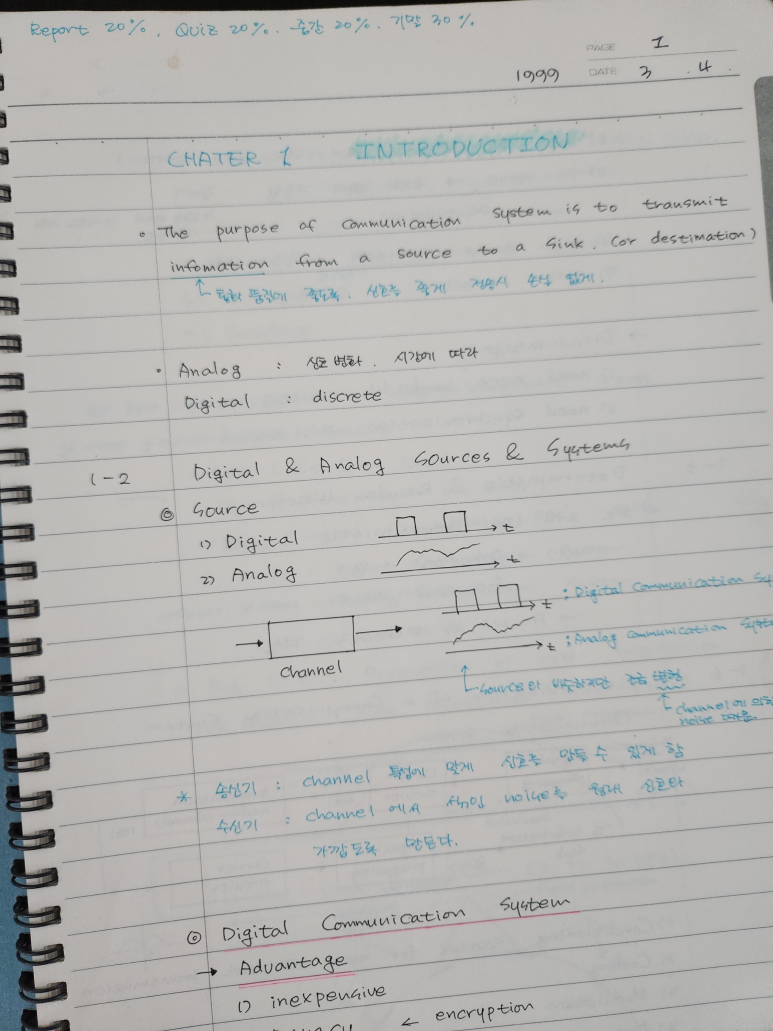 Report 20%. Quiz 20%. 중간 20%. 기말 30%
PAGE 1
1999 DATE 3 . 4 .
CHATER 1 INTRODUCTION
• The purpose of communication system is to transmit
infomation from a source to a sink. (or destimation)
↑ 통화 품질에 좋도록. 신호를 좋게 전송시 손실 없게.
• Analog : 신호 변화. 시간에 따라
Digital : discrete
1-2 Digital & Analog Sources & Systems
◎ Source
1) Digital t
2) Analog t
t : Digital Communication Sy
t : Analog Communication Syste
Channel
↑ Source와 비슷하지만 조금 변형
↑ Channel에 의한
noise 때문
* 송신기 : Channel 특성에 맞게 신호를 만들 수 있게 함
수신기 : Channel에서 섞인 noise를 원래 신호와
가깝도록 만든다.
◎ Digital Communication System
→ Advantage
1) inexpensive
← encryption